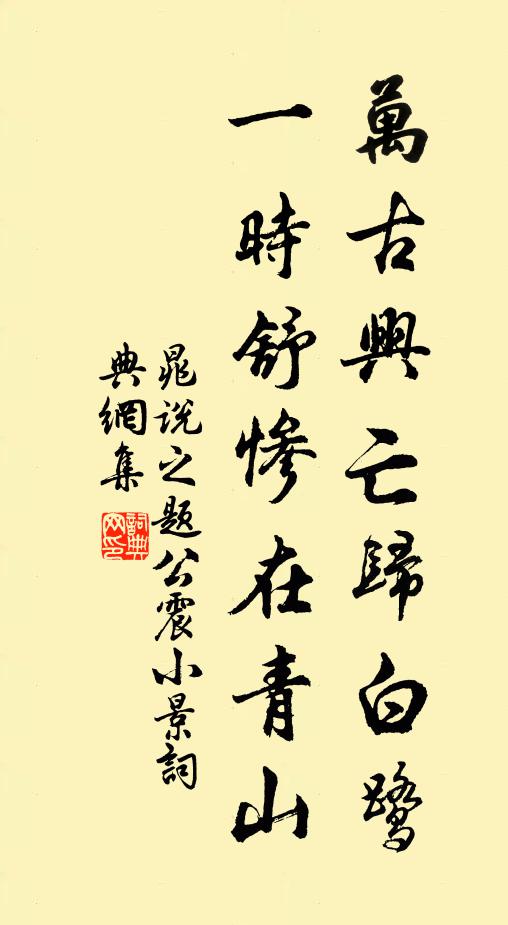 萬古興亡歸白鹭
一時舒慘在青山
晁说之题公震小景詞
典網集
詞典
网印